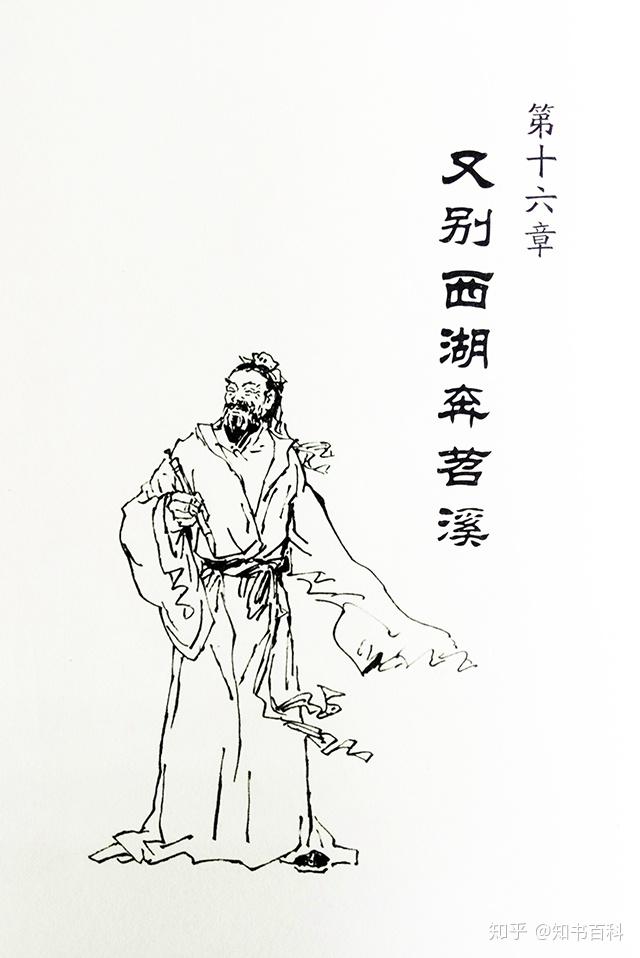 第十六章
又别西湖奔苕溪
知乎 @知书百科